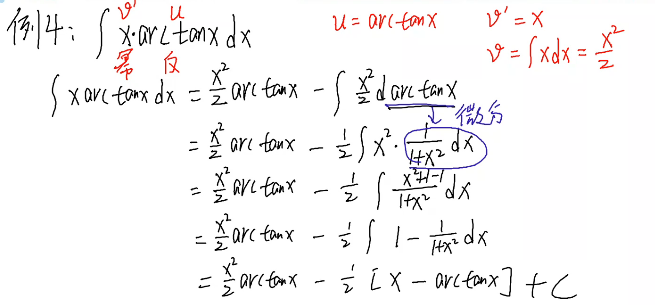 v' u u = arctanx v' = x
例4: ∫ x·arctanx dx v = ∫xdx = x²/2
幂 反
∫ x arctanx dx = x²/2 arctanx - ∫ x²/2 d arctanx
↓ 微分
= x²/2 arctanx - 1/2 ∫ x² · 1/(1+x²) dx
= x²/2 arctanx - 1/2 ∫ (x²+1-1)/(1+x²) dx
= x²/2 arctanx - 1/2 ∫ 1 - 1/(1+x²) dx
= x²/2 arctanx - 1/2 [x - arctanx] + C